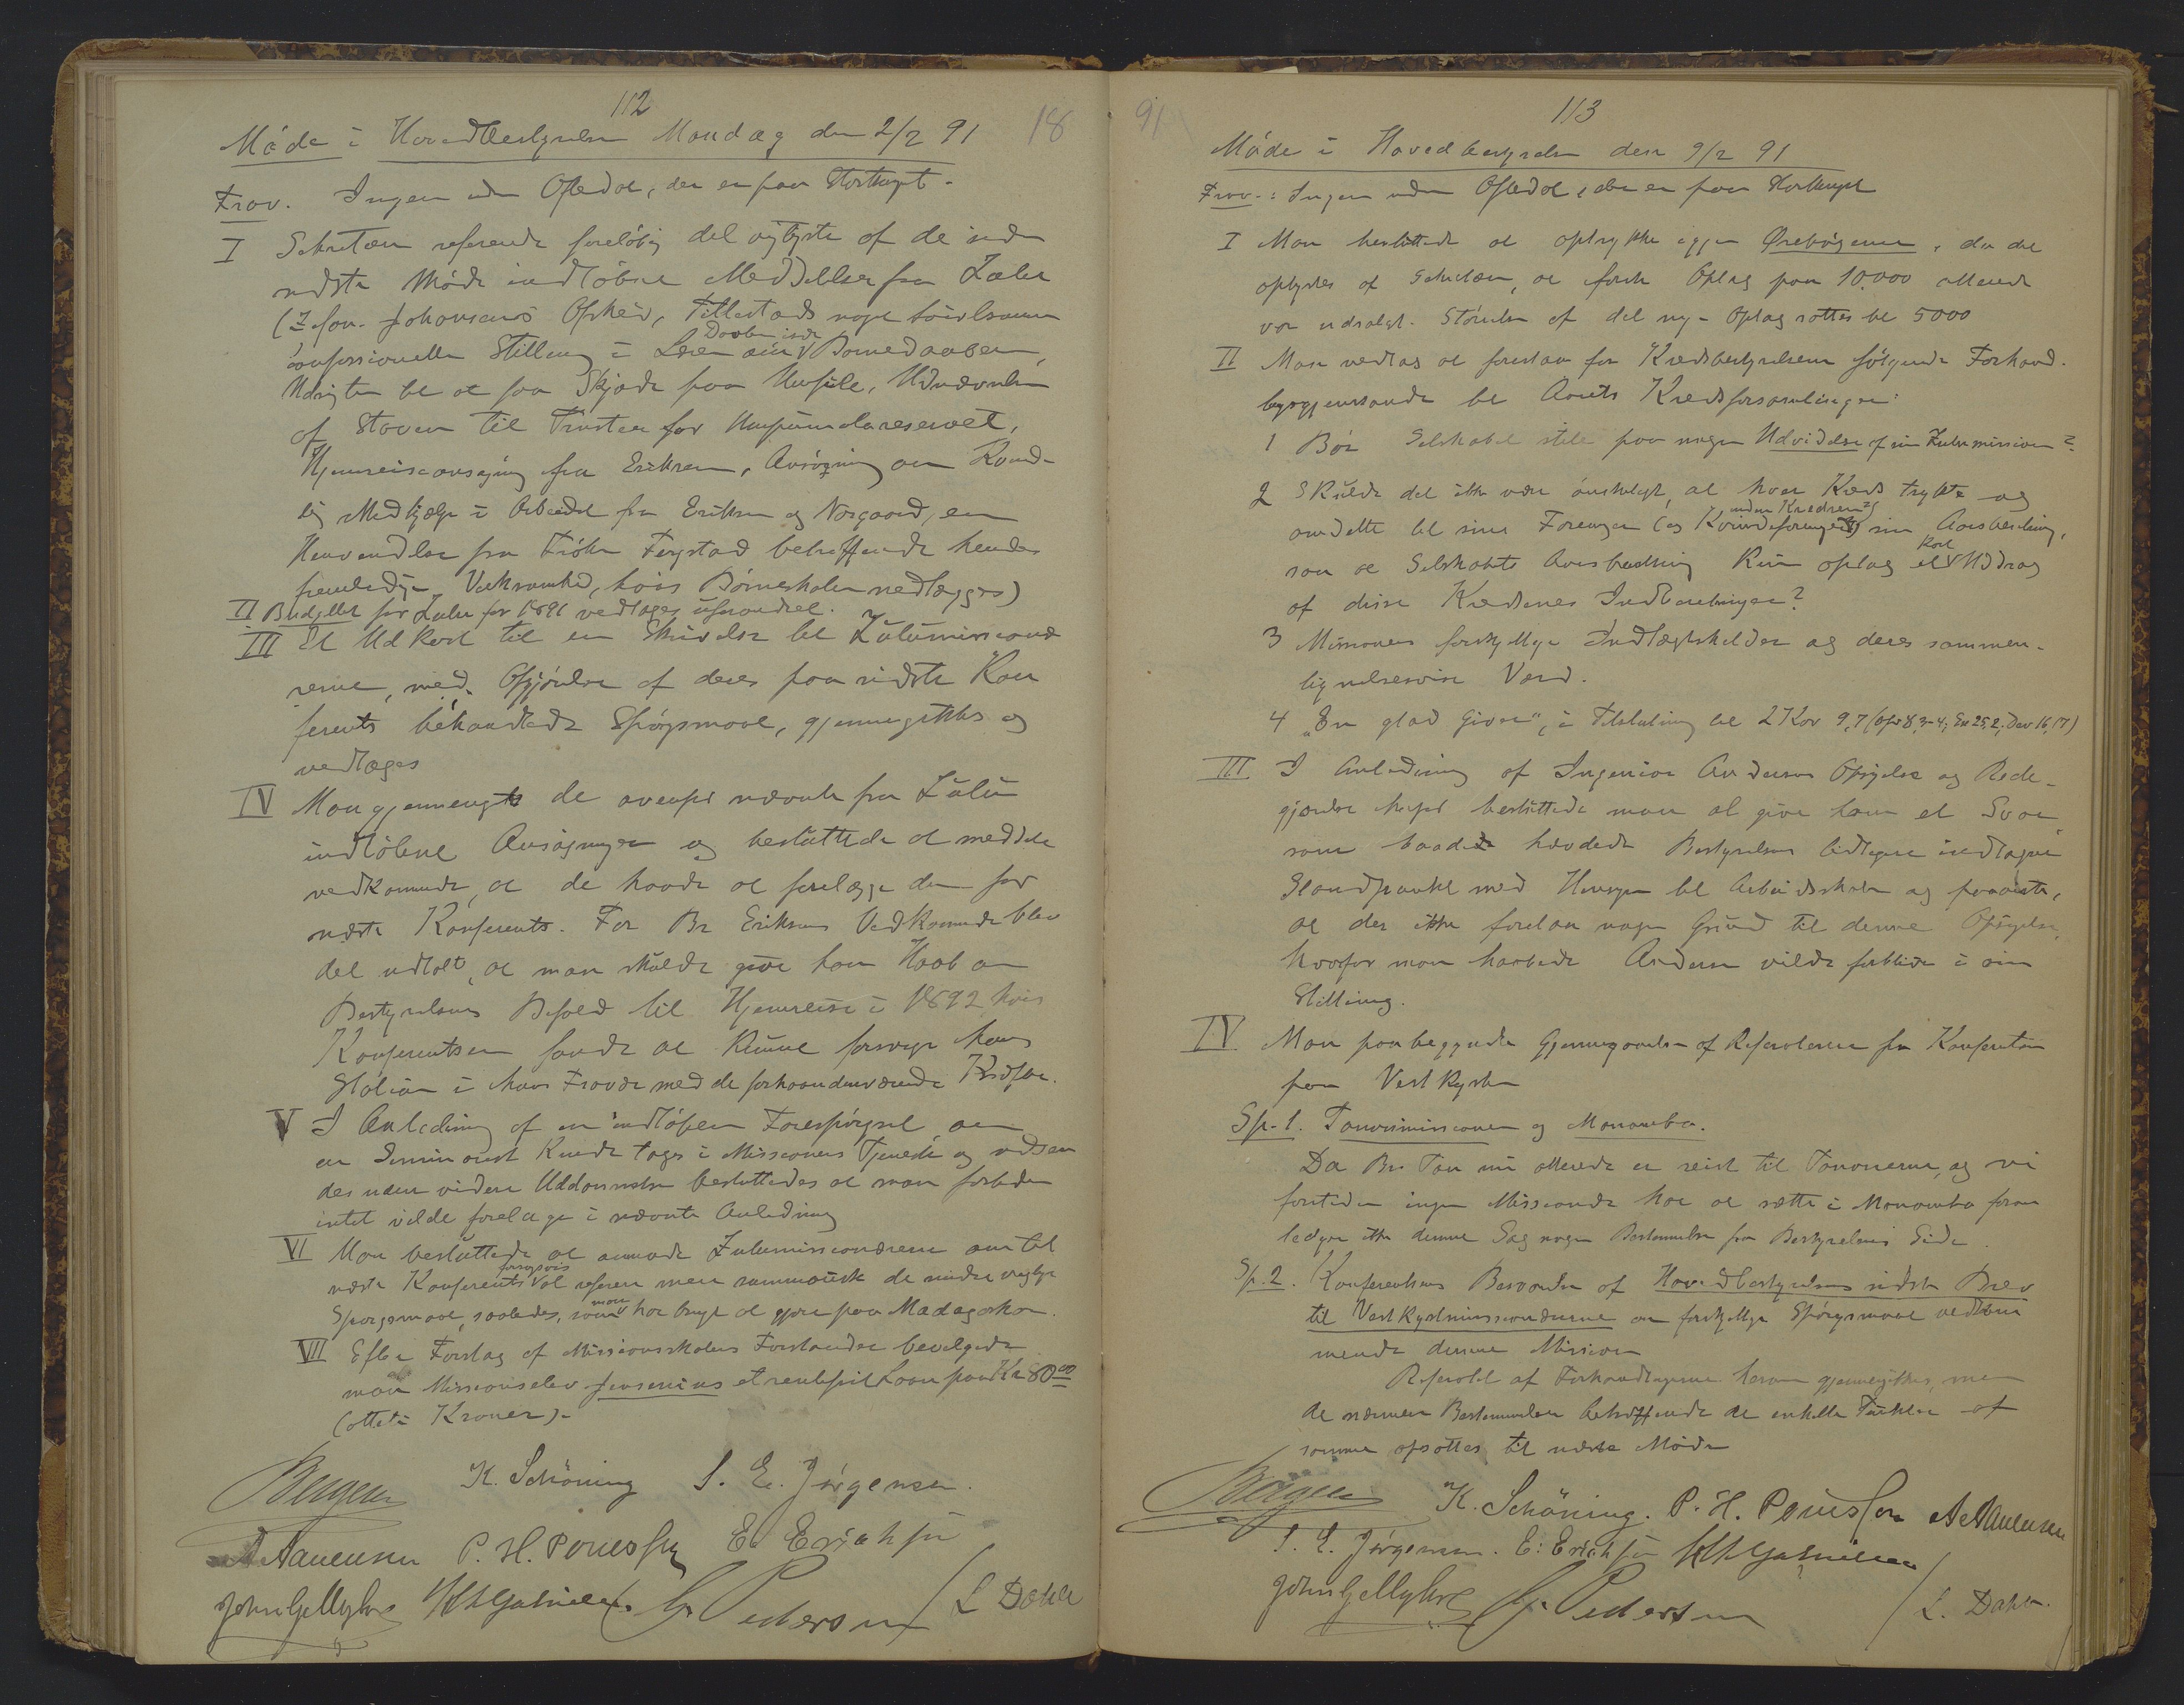 112
18
Møde i Hovedbestyrelsen Mandag den 2/2 91
Frav. Ingen uden Oftedal, der er paa Storthinget.
I Sekretæren refererede foreløbig det vigtigste af de siden
sidste Møde indløbne Meddelelser fra Zulu
( Johansens Afsked, Titlestads noget tvivlsomme
konfessionelle Stilling i Læren om Daaben især Barnedaaben,
Udsigten til at faa Skjøde paa Umfule, Udnævnelsen
af Staven til Trustee for Umpumuloreservet,
Hjemreiseansøgning fra Eriksen, Ansøgning om Kvinde-
lig Medhjælp i Arbeidet fra Eriksen og Norgaard, en
Henvendelse fra Frøken Tergstad betræffende hendes
fremtidige Virksomhed, hvis Børneskolen nedlægges)
II Budgettet for Zulu for 1891 vedtages uforandret.
III Et Udkast til en Skrivelse til Zulumissionæ
rerne, med Afgjørelse af deres paa sidste Kon
ferents behandlede Spørgsmaal, gjennemgikkes og
vedtages
IV Man gjennemgik de ovenfor nævnte fra Zulu
indløbne Ansøgninger og besluttede at meddele
vedkommende, at de havde at forelægge dem for
næste Konferents. For Br Eriksens Vedkommende blev
det udtalt, at man skulde give ham Haab om
Bestyrelsens Bifald til Hjemreise i 1892, hvis
Konferentsen fandt at kunne forsørge hans
Station i hans Fravær med de forhaandenværende Kræfter.
V I Anledning af en indløben Forespørgsel, om
en Seminarist kunde tages i Missionens Tjeneste og udsen
des uden videre Uddannelse besluttedes at man fortiden
intet vilde foretage i nævnte Anledning
VI Man besluttede at anmode Zulumissionærerne om til
næste Konferents forsøgsvis at referere mere summarisk de mindre vigtige
Spørgsmaal, saaledes, som man har brugt at gjøre paa Madagaskar.
VII Efter Forslag af Missionsskolens Forstander bevilgede
man Missionselev Jensenius et rentefrit Laan paa Kr 80 00
(otteti Kroner).
Bergen K. Schöning S. E. Jørgensen.
A Aanensen P. H. Poulssøn E. Erichsen
John Gjellylse Gabrielsen. G. Pedersen / L Dahle
91
113
Møde i Hovedbestyrelsen den 9/2 91
Frav.: Ingen uden Oftedal, der er paa Storthinget
I Man besluttede at optrykke igjen Ørebøgerne, da det
oplystes af Sekretæren, at første Oplag paa 10.000 allerede
var udsolgt. Størrelsen af det nye Oplag sættes til 5000
II Man vedtog at foreslaa for Kredsbestyrelserne følgende Forhand-
lingsgjenstande til Aarets Kredsforsamlinger:
1 Bør Selskabet stile paa nogen Udvidelse af sin Zulumission?
2 Skulde det ikke være ønskeligt, at hver Kreds trykte og
omdelte til sine Foreninger (og Kvindeforeninger inden Kredsen?) sin Aarsberetning,
saa at Selskabets Aarsberetning kun optog et kort Uddrag
af disse Kredsenes Indberetninger?
3 Missionens forskjellige Indtægtskilder og deres sammen-
ligningsvise Værd.
4 „En glad Giver“, i Tilslutning til 2 Kor 9,7 (cfr 8,3-4; Ex 25,2; Deu 16,17)
III I Anledning af Ingeniør Andersens Opsigelse og Rede-
gjørelse herfor besluttede man at give ham et Svar
som baade hævdede Bestyrelsens tidligere indtagne
Standpunkt med Hensyn til Arbeidsskolen og paaviste,
at der ikke forelaa nogen Grund til denne Opsigelse,
hvorfor man haabede Andersen vilde forblive i sin
Stilling.
IV Man paabegyndte Gjennemgaaelsen af Referaterne fra Konferentsen
paa Vestkysten
Sp. 1. Tanosimissionen og Manombo.
Da Br. Tou nu allerede er reist til Tanosierne, og vi
fortiden ingen Missionær har at sætte i Manombo foran
lediger ikke denne Sag nogen Bestemmelse fra Bestyrelsens Side.
Sp. 2. Konferentsens Besvarelse af Hovedbestyrelsens sidste Brev
til Vestkystmissionærerne om forskjellige Spørgsmaal vedkom
mende denne Mission
Referatet af Forhandlingerne herom gjennemgikkes, men
de nærmere Bestemmelser betræffende de enkelte Punkter af
samme opsættes til næste Møde
Bergen K. Schöning. P. H. Poulssøn A Aanensen
S. E. Jørgensen. E. Erichsen Gabrielsen
John Gjellylse G. Pedersen / L. Dahle.